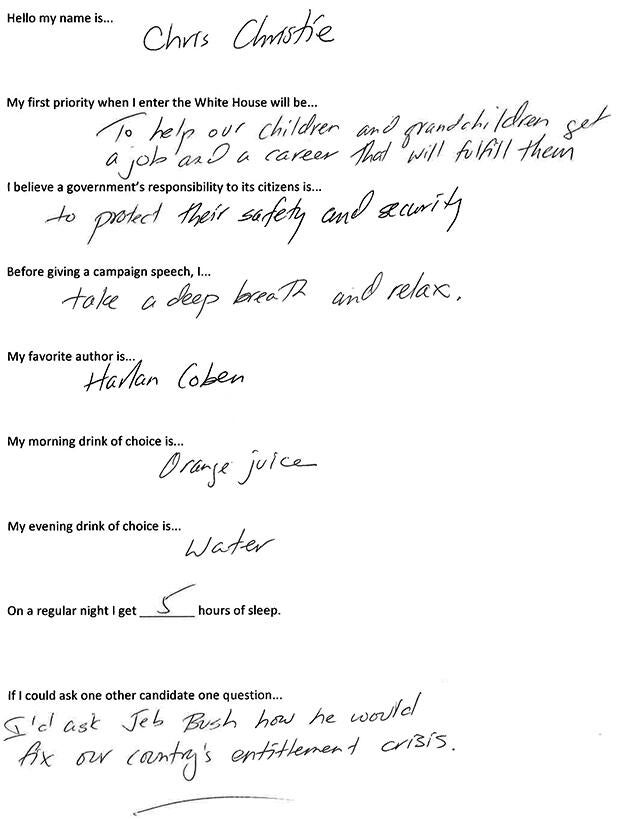 Hello my name is...
Chris Christie
My first priority when I enter the White House will be...
To help our children and grandchildren get
a job and a career that will fulfill them
I believe a government's responsibility to its citizens is...
to protect their safety and security
Before giving a campaign speech, I...
take a deep breath and relax.
My favorite author is...
Harlan Coben
My morning drink of choice is...
Orange juice
My evening drink of choice is...
Water
On a regular night I get 5 hours of sleep.
If I could ask one other candidate one question...
I'd ask Jeb Bush how he would
fix our country's entitlement crisis.